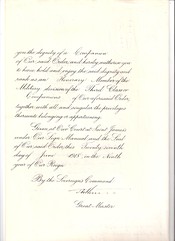 you the dignity of a Companion
of Our said Order, and hereby authorize you
to have hold and enjoy the said dignity and
rank as an Honorary Member of the
Military Division of the Third Class or
Companions of Our aforesaid Order,
together with all and singular the privileges
thereunto belonging or appertaining.
Given at Our Court at Saint James's
under Our Sign Manual and the Seal
of Our said Order, this Twenty seventh
day of June 1918, in the Ninth
year of Our Reign.
By the Sovereign's Command.
Grand Master